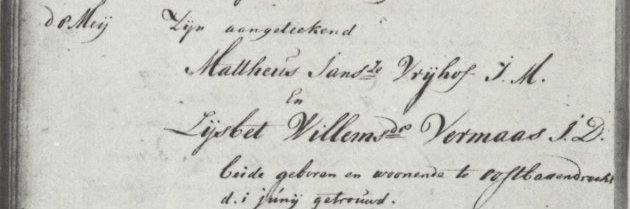 d° Meij Zijn aangeteekend
Mattheus Jansze Vrijhof J.M.
En
Lijsbet Willemsdr Vermaas J.D.
beide geboren en woonende te oostbarendrecht
d. 1 junij getrouwd.